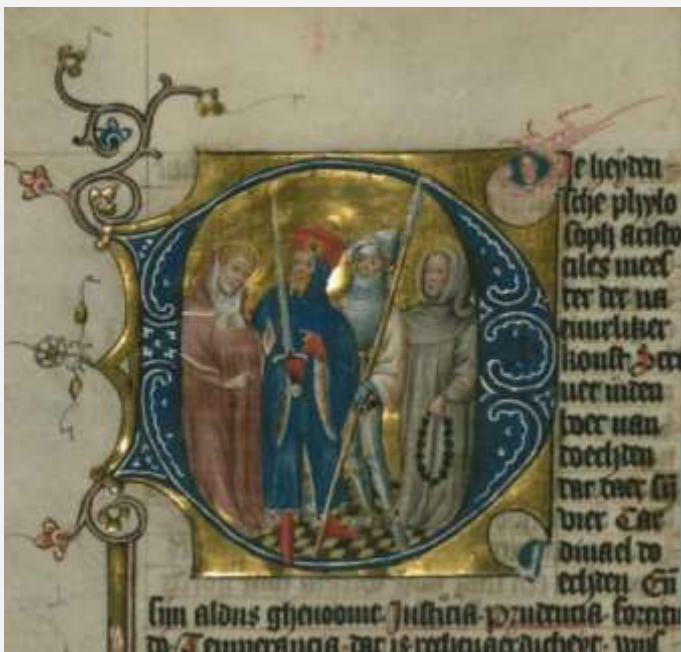 DIe heyden
sche phylo
soph aristo
tiles mees
ter der na
tuurliker
konst Scri
uet inden
boec uan
doechden
dat daer sijn
vier Car
dinael do
echden En
sijn aldus ghenoomt. Justicia prudencia fortitu
do Temperancia. dat is rechtuaerdicheyt. wijs